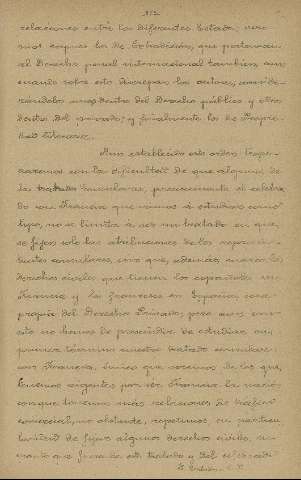 312
relaciones entre los diferentes Estados, vere
mos luego los de Extradición, que pertenecen
al Derecho penal internacional tambien, aun
cuando sobre esto discrepan los autores, consi-
rándolos unos dentro del Derecho público y otros
dentro del privado; y finalmente los de Propie-
dad literaria.
Aun establecido este orden trope-
zaremos con la dificultad de que algunos de
los tratados consulares, precisamente el celebra-
do con Francia que vamos á estudiar como
tipo, no se limita á ser un tratado en que
se fijen solo las atribuciones de los represen-
tantes consulares, sino que, además, marca los
derechos civiles que tienen los españoles en
Francia y los franceses en España, cosa
propia del Derecho Privado; pero aun con
esto no hemos de prescindir de estudiar en
primer término nuestro tratado consular
con Francia, único que de los que
tenemos vigentes por ser Francia la nació
con que tenemos más relaciones de
comercial; no obstante, repetimos, en particu
lar de fijar algunos derechos civiles,
que en este tratado y del